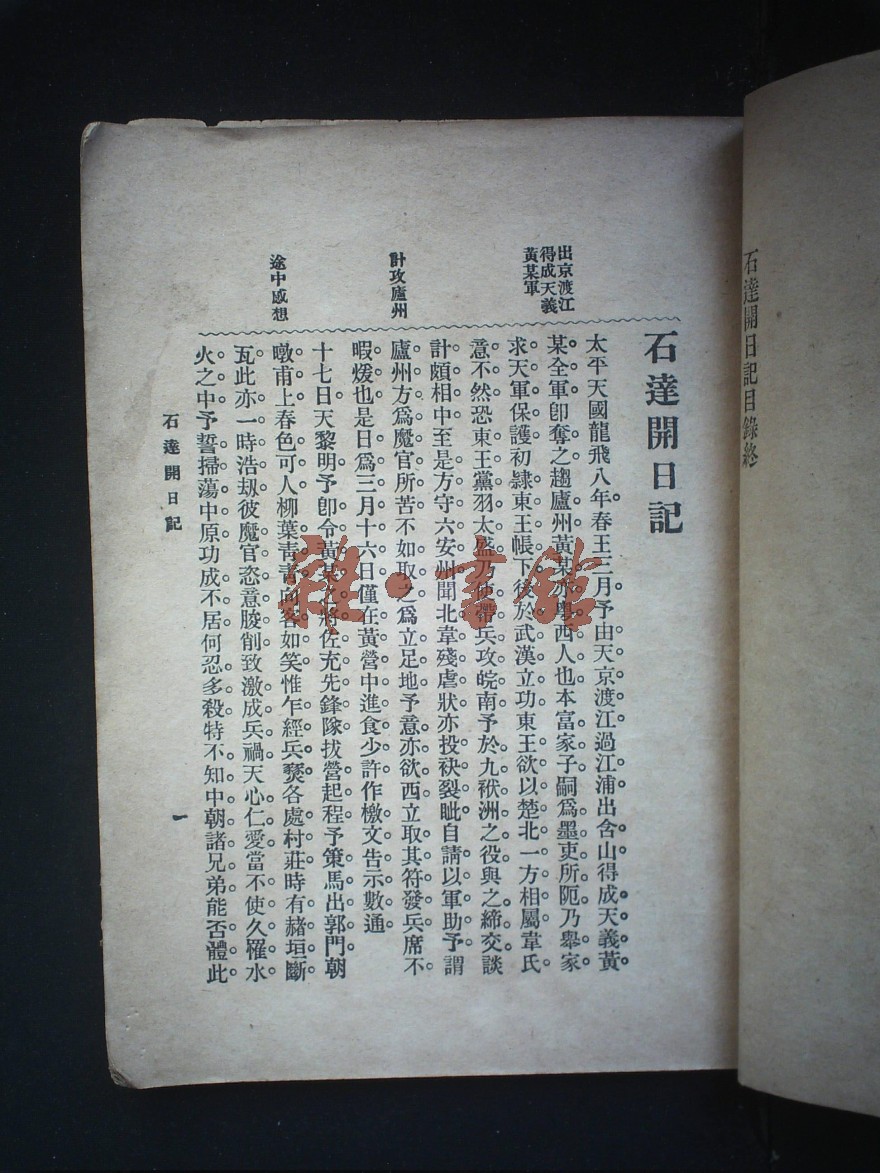 石達開日記目錄終
出京渡江
得成天義
黃某軍
計攻廬州
途中感想
石達開日記
太平天國龍飛八年春王三月予由天京渡江過江浦出含山得成天義黃
某全軍卽奪之趨廬州黃某亦粵西人也本富家子嗣爲墨吏所阨乃舉家
求天軍保護初隸東王帳下後於武漢立功東王欲以楚北一方相屬韋氏
意不然恐東王黨羽太盛乃使帶兵攻皖南予於九袱洲之役與之締交談
計頗相中至是方守六安州聞北韋殘虐狀亦投袂裂眦自請以軍助予謂
廬州方爲魔官所苦不如取之爲立足地予意亦欲西立取其符發兵席不
暇煖也是日爲三月十六日僅在黃營中進食少許作檄文告示數通
十七日天黎明予卽令黃某之將佐充先鋒隊拔營起程予策馬出郭門朝
暾甫上春色可人柳葉靑靑向客如笑惟乍經兵燹各處村莊時有赭垣斷
瓦此亦一時浩刼彼魔官恣意朘削致激成兵禍天心仁愛當不使久罹水
火之中予誓掃蕩中原功成不居何忍多殺特不知中朝諸兄弟能否體此
石達開日記
一
雅·書館